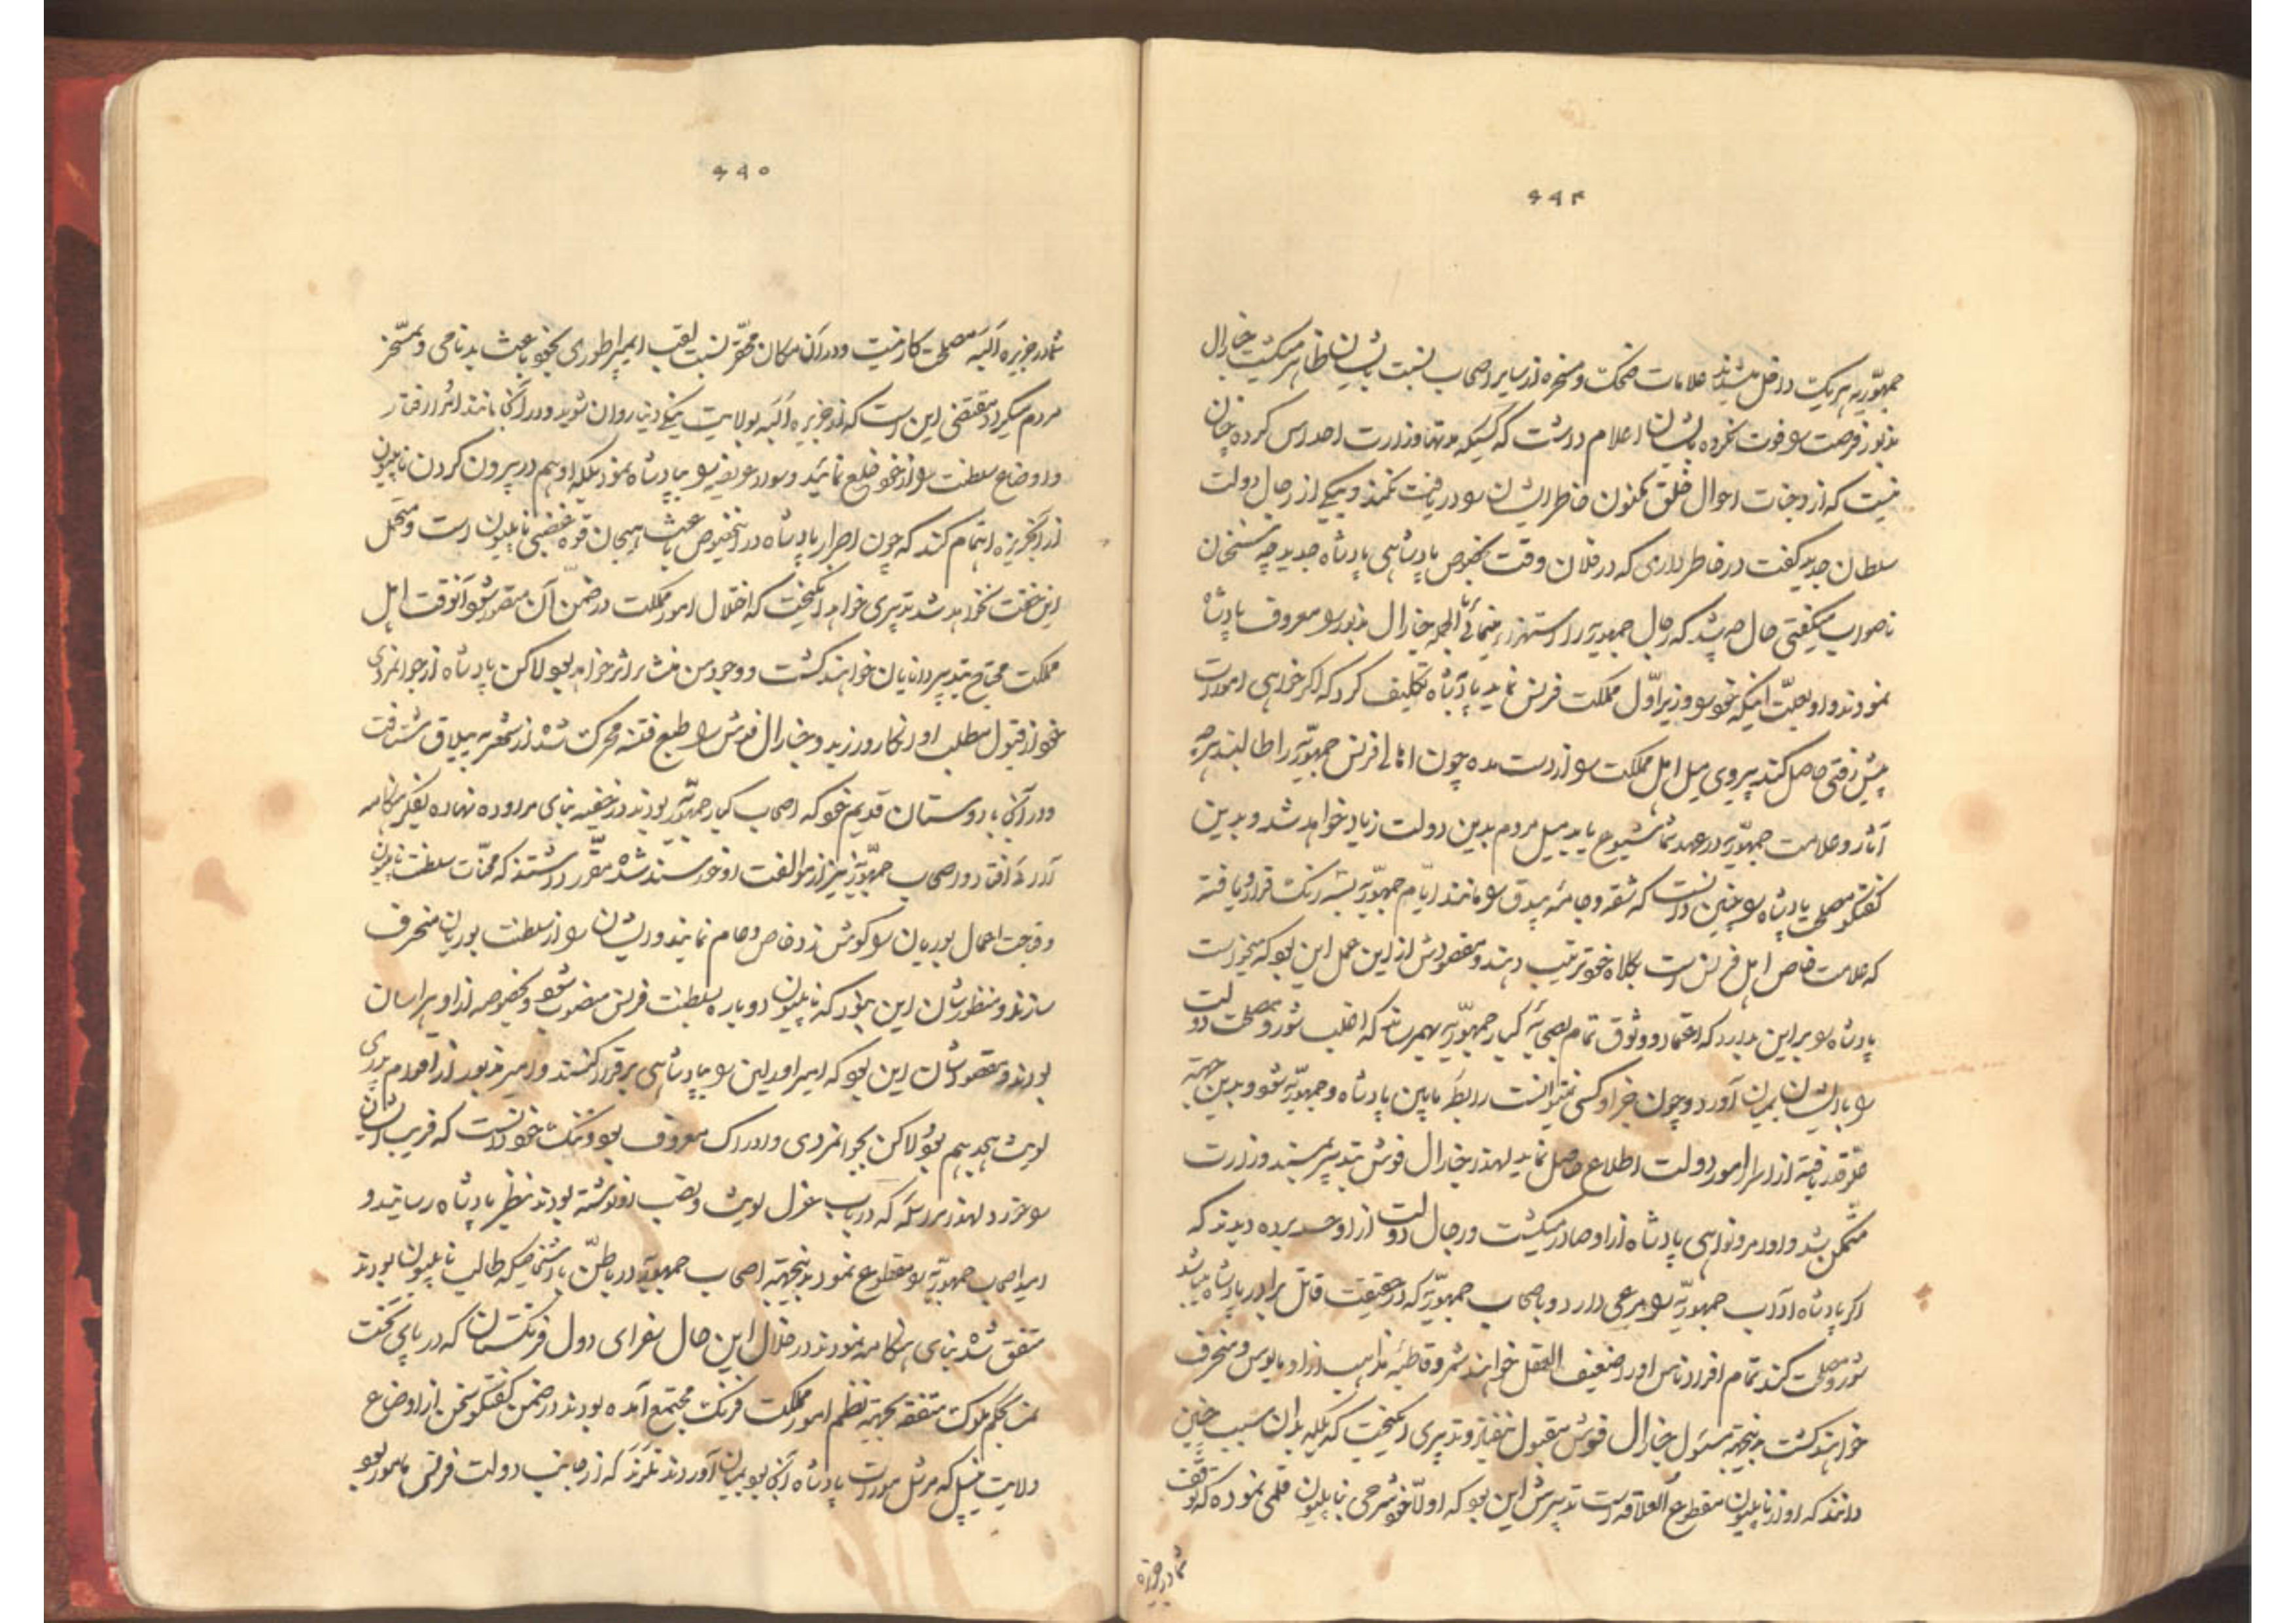 ۶۶۴
جمهوریه هریک داخل میشدند علامات ضحک و سخره از سایر اصحاب نسبت بایشان ظاهر میکشت جنارال
مذبور فرصت را فوت نکرده بایشان اعلام داشت که کسیکه مدتها وزارت احداس کرده چنان
نیست که از وجنات احوال خلق مکنون خاطر ایشان را دریافت نکند و بیکی از رجال دولت
سلطان جدید کفت در خاطر داری که در فلان وقت بخصوص پادشاهی پادشاه جدید چه سخنان
ناصواب میکفتی حال چه شد که رجال جمهوریه را استهزاء مینمائی الحمله جنارال مذبور را معروف پادشاه
نمودند و او بعلت اینکه خود را وزیر اول مملکت فرنس نماید پادشاه تکلیف کرد که اکر خواهی امورات
پیش رفتی حاصل کند پیروی میل اهل مملکت را از دست مده چون اهالی فرنس جمهوریه را طالبند هرچه
آثار و علامت جمهوریه در عهد شما شیوع یابد میل مردم بدین دولت زیاد خواهد شد و بدین
کفتکو مصلحت پادشاه را چنین دانست که شقه و جامه بیدق را مانند ایام جمهوریه بسه رنک قرار و یافته
که علامت خاص اهل فرنس است بکلاه خود ترتیب دهند و مقصودش از این عمل این بود که میخواست
پادشاه را براین بدارد که اعتماد و وثوق تمام بصحابه کبار جمهوریه بهم رساند که اغلب شور و مصلحت دولت
را با ایشان بمیان آورد و چون جز او کسی نمیتوانست رابطه مابین پادشاه و جمهوریه شود و بدین جهته
از اسرار امور دولت اطلاع حاصل نماید لهذا جنارال فوش بتدبیر بمسند وزارت
متمکن شد و اوامر و نواهی پادشاه از او صادر میکشت و رجال دولت از او حسد برده دیدند که
اکر پادشاه آداب جمهوریه را مرعی دارد و باصحاب جمهوریه که در حقیقت قاتل برادر پادشاه میباشد
شور و مصلحت کند تمام افراد ناس او را ضعیف العقل خوانند شمرد و قاطبه مذاهب از او مایوس و منحرف
خواهند کشت بدینجهته مسئول جنارال فوش مقبول نیفتاد و تدبیری انکیخت که بلکه بدان سبب چنین
دانند که او از ناپلیون مقطوع العلاقه است تدبیرش این بود که اولا خود شرحی بناپلیون قلمی نموده که توقف
شما در جزیره
۶۶۵
شما در جزیره البه مصلحت کار نیست و در آن مکان محقر نسبت لقب ایمپراطوری بخود باعث بدنامی و تمسخر
مردم میکردد مقتضی این است که از جزیره البه بولایت ینکی دنیا روان شوید و در آنجا مانند
و اوضاع سلطنت را از خود خلع نمائید و سواد عریضه را بپادشاه نمود بلکه او هم در بیرون کردن ناپلیون
از آن جزیره اهتمام کند که چون اصرار پادشاه در اینخصوص باعث هیجان قوه غضبی ناپلیون است و متحمل
این خفت نخواهد شد تدبیری خواهد انکیخت که اختلال امور مملکت در ضمن آن متصور شود آنوقت اهل
مملکت محتاج بتدبیر دانایان خواهند کشت و وجود من منشاء اثر خواهد بود لاکن پادشاه از جوانمردی
خود از قبول مطلب او انکار ورزید و جنارال فوش را طبع فتنه محرک شده از شهر به ییلاق شتافت
و در آنجا با دوستان قدیم خود که اصحاب کبار جمهوریه بودند در خفیه بنای مراوده نهاده بفکر هنکامه
افتاد و اصحاب جمهوریه نیز از موالفت او خورسند شده مقرر داشتند که محنات سلطنت ناپلیون
و قباحت اعمال بوربان را کوش زد خاص و عام نمایند و ایشان را از سلطنت بوربان منحرف
سازند و منظورشان این نبود که ناپلیون دوباره بسلطنت فرنس منصوب شود بخصوصه از او هراسان
بودند و مقصودشان این بود که امیر اورلین را بپادشاهی برقرار کنند و امیر مذبور از اقوام پدری
لویش هجدهم بود لاکن بجوانمردی و ادراک معروف بود و ننک خود دانست که فریب ایشان
را خورد لهذا مراسله که در باب عزل لویش و نصب او نوشته بودند بنظر پادشاه رسانید و
امید اصحاب جمهوریه را مقطوع نمود بدینجهته اصحاب جمهوریه در باطن با اشخاصیکه طالب ناپلیون بودند
متفق شده بنای هنکامه نمودند در خلال این حال سفرای دول فرنکستان که در پای تخت
نمسا بحکم ملوک متفقه بجهته نظم امور مملکت فرنک مجتمع آمده بودند در ضمن کفتکو سخن از اوضاع
ولایت نیپل که مرشل مورات پادشاه آنجا بود بمیان آوردند تلرند که از جانب دولت فرانس مامور بود